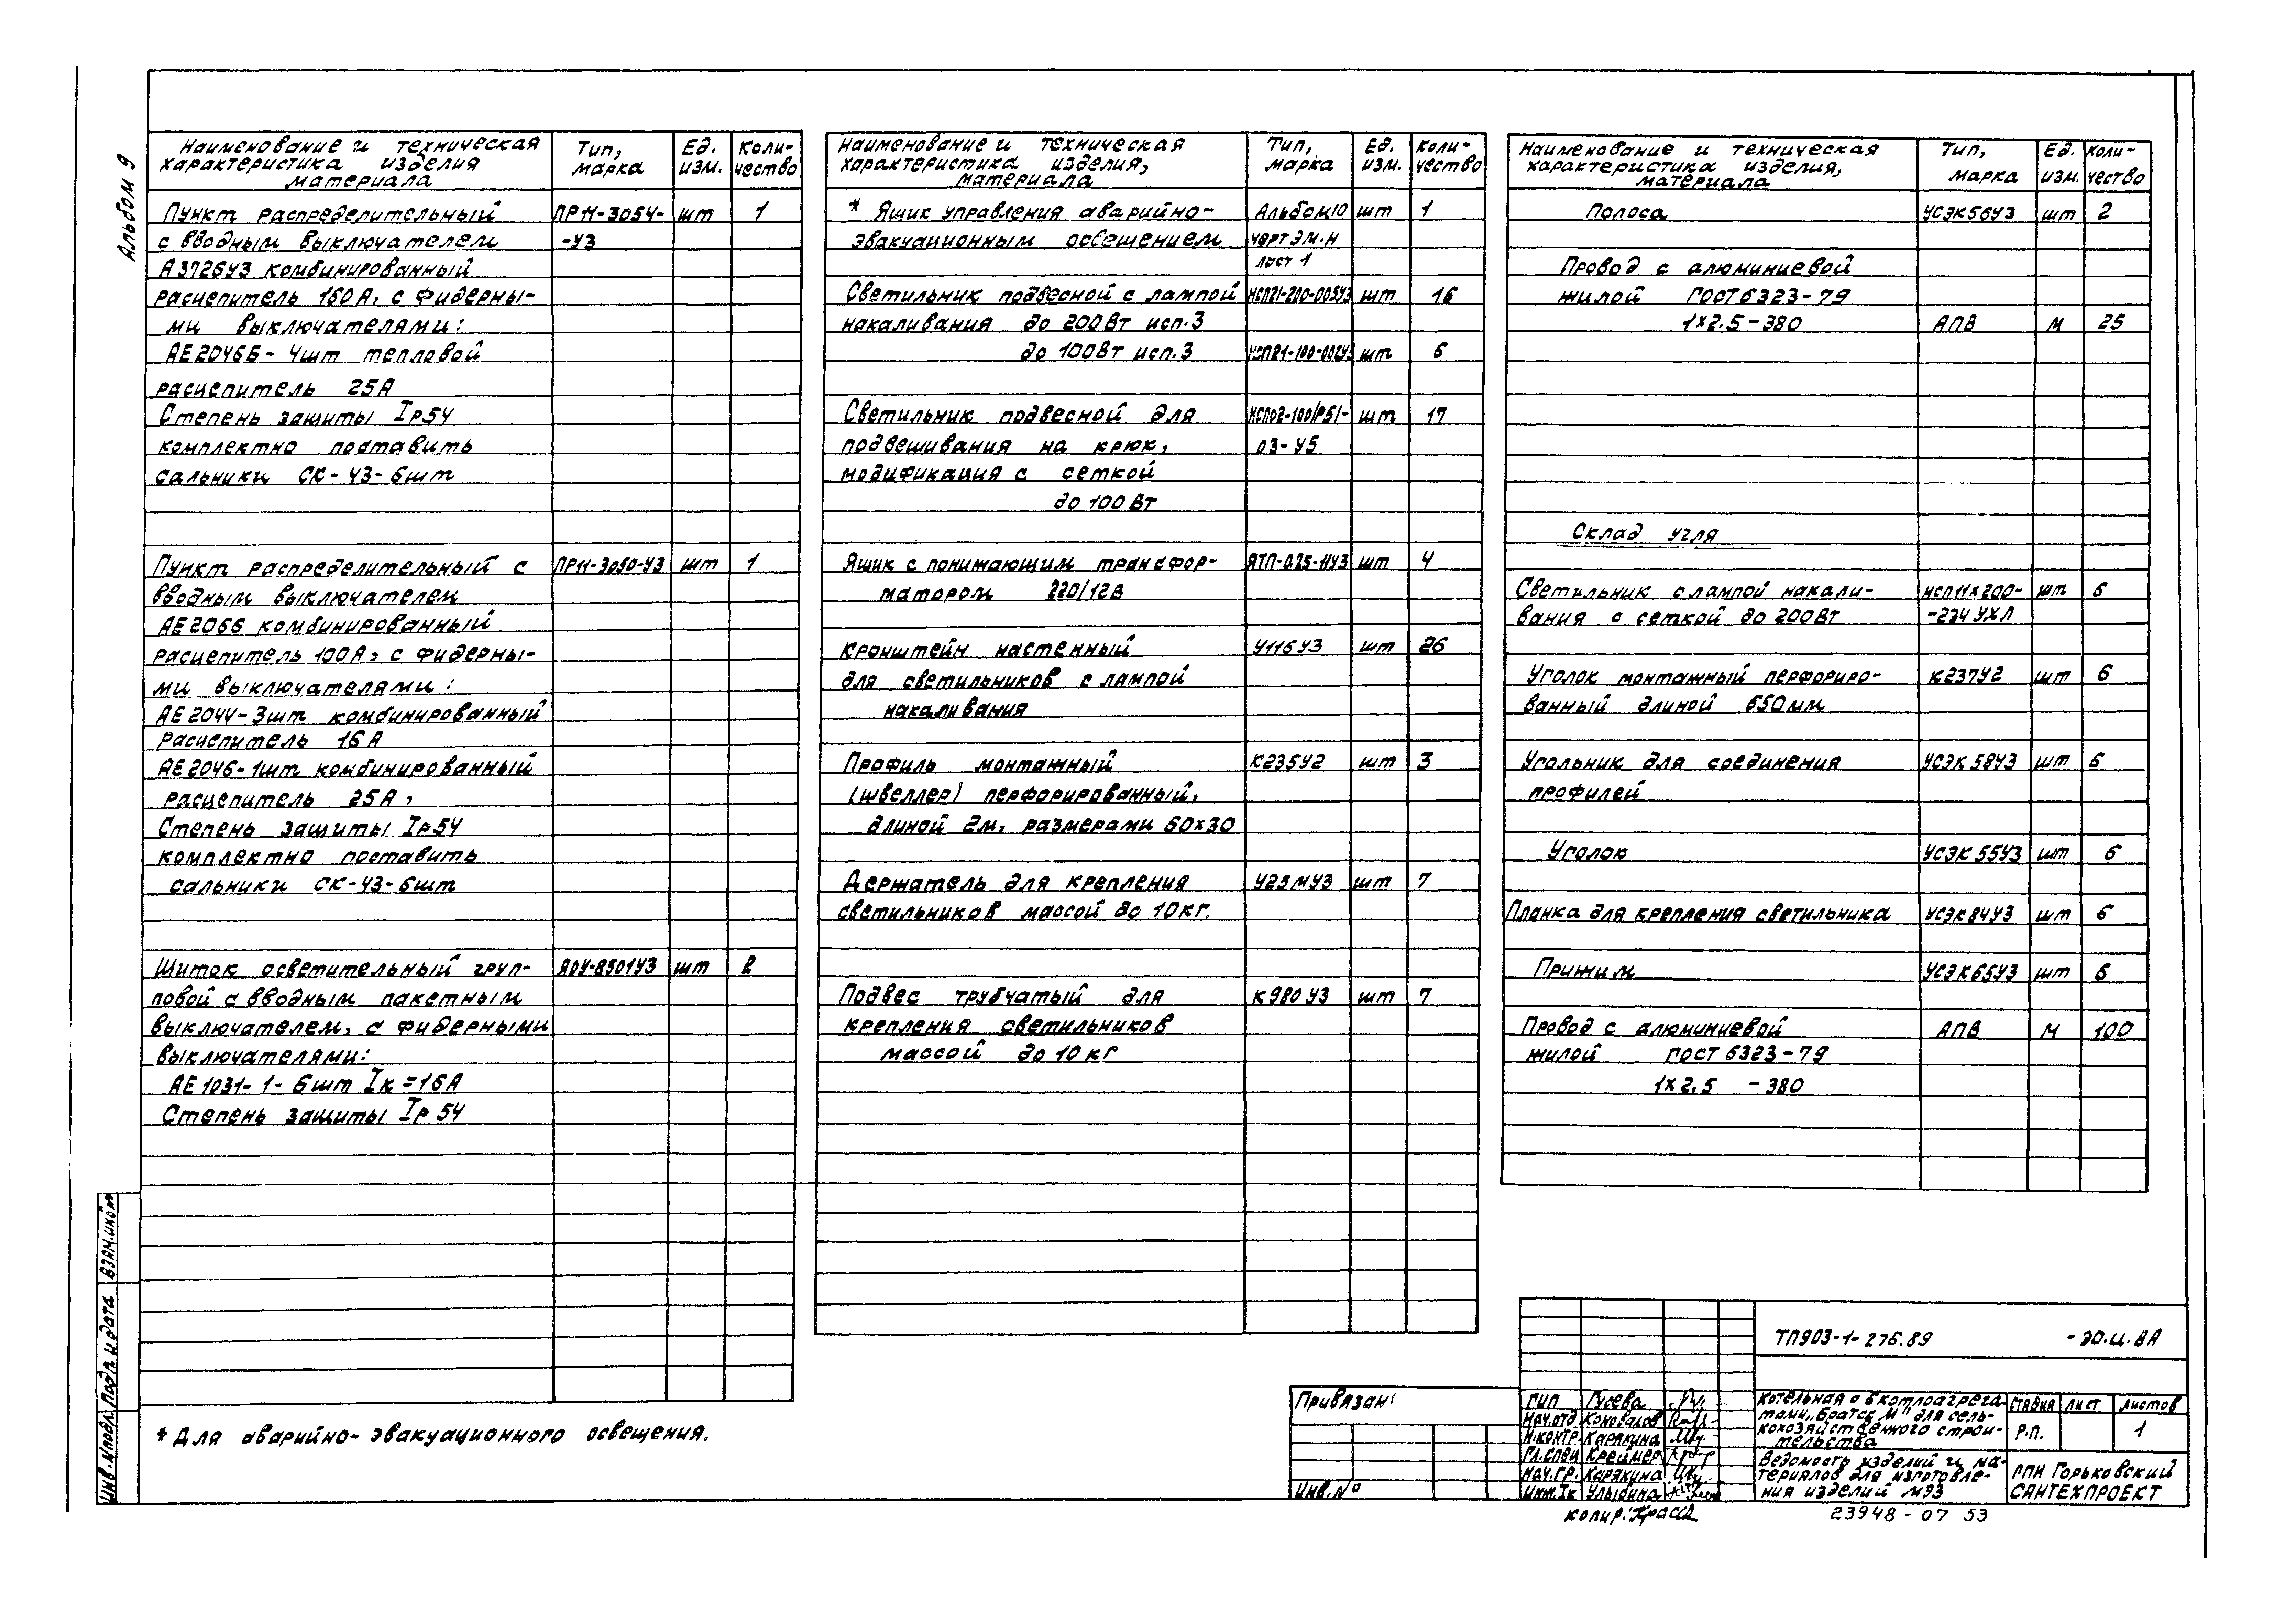 Альбом 9
Наименование и техническая
характеристика изделия
материала
Тип,
марка
Ед.
изм.
Коли-
чество
Пункт распределительный ПР11-3054- шт 1
с вводным выключателем -У3
А3726У3 комбинированный
расцепитель 160А, с фидерны-
ми выключателями:
АЕ2046Б- 4шт тепловой
расцепитель 25А
Степень защиты Iр54
комплектно поставить
сальники СК-43-6шт
Пункт распределительный с ПР11-3050-У3 шт 1
вводным выключателем
АЕ2066 комбинированный
расцепитель 100А, с фидерны-
ми выключателями:
АЕ2044-3шт комбинированный
Расцепитель 16А
АЕ2046-1шт комбинированный
расцепитель 25А,
Степень защиты Iр54
комплектно поставить
сальники СК-43-6шт
Щиток осветительный груп- ЯОУ-8501У3 шт 2
повой с вводным пакетным
выключателем, с фидерными
выключателями:
АЕ1031-1-6шт Iк=16А
Степень защиты Iр54
* Для аварийно-эвакуационного освещения.
Наименование и техническая
характеристика изделия,
материала
Тип,
марка
Ед.
изм.
Коли-
чество
* Ящик управления аварийно- Альбом10 шт 1
эвакуационным освещением черт ЭМ.Н
лист 1
Светильник подвесной с лампой НСП21-200-005У3 шт 16
накаливания до 200Вт исп.3
до 100Вт исп.3 НСП21-100-002У3 шт 6
Светильник подвесной для НСП02-100/Р51- шт 17
подвешивания на крюк, 03-У5
модификация с сеткой
до 100Вт
Ящик с понижающим трансфор- ЯТП-0.25-11У3 шт 4
матором 220/12В
Кронштейн настенный У116У3 шт 26
для светильников с лампой
накаливания
Профиль монтажный К235У2 шт 3
(швеллер) перфорированный,
длиной 2м, размерами 60х30
Держатель для крепления У25МУ3 шт 7
светильников массой до 10кг.
Подвес трубчатый для К980У3 шт 7
крепления светильников
массой до 10кг
Наименование и техническая
характеристика изделия,
материала
Тип,
марка
Ед.
изм.
Коли-
чество
Полоса УСЭК56У3 шт 2
Провод с алюминиевой
жилой ГОСТ6323-79
1х2.5-380 АПВ м 25
Склад угля
Светильник с лампой накали- НСП11х200- шт 6
вания с сеткой до 200Вт -234УХЛ
Уголок монтажный перфориро- К237У2 шт 6
ванный длиной 650мм
Угольник для соединения УСЭК58У3 шт 6
профилей
Уголок УСЭК55У3 шт 6
Планка для крепления светильника УСЭК84У3 шт 6
Прижим УСЭК65У3 шт 6
Провод с алюминиевой АПВ М 100
жилой ГОСТ6323-79
1х2,5 -380
ТП903-1-276.89 -ЭО.И.ВА
Привязан:
Инв.№
ГИП Гусева
Нач.отд Коновалов
Н.контр Карякина
Гл.спец Креймер
Нач.гр. Карякина
Инж.Iк Улыбина
Котельная с 6 котлоагрега-
тами „Братск М" для сель-
кохозяйственного строи-
тельства
Стадия Лист Листов
Р.П. 1
Ведомость изделий и ма-
териалов для изготовле-
ния изделий МЭЗ
ГПИ Горьковский
САНТЕХПРОЕКТ
копир:
23948-07 53
Инв.№подл. Подп. и дата Взам.инв№